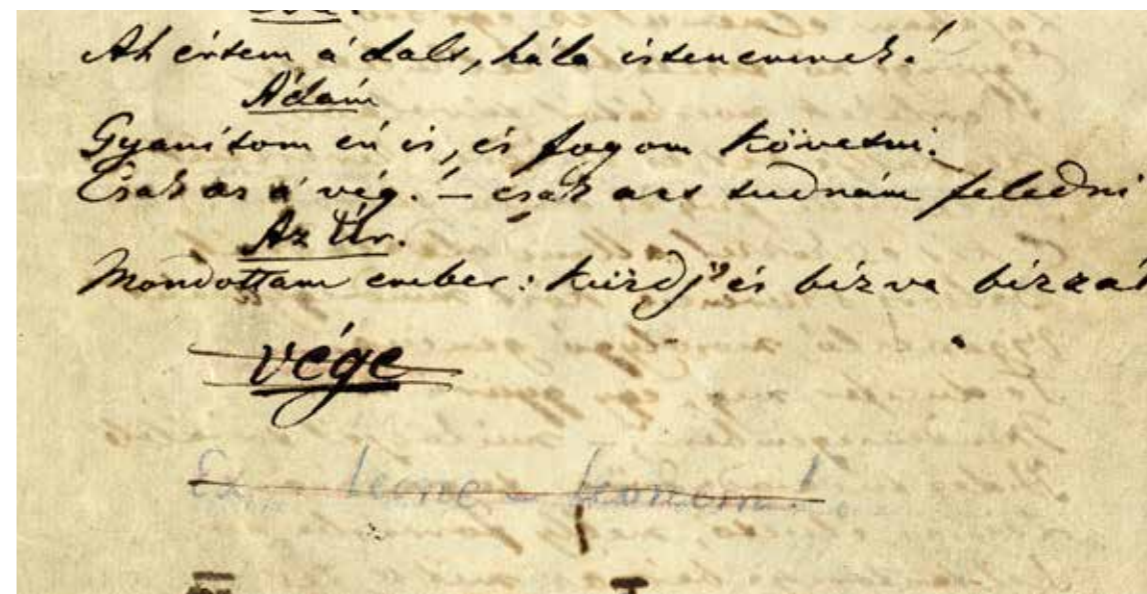 Ah értem a dalt, hála istenemnek!
Ádám
Gyanítom én is, és fogom követni.
Csak az a vég! – csak azt tudnám feledni
Az Úr.
Mondottam ember: küzdj és bízva bízzál
vége
Ex leone leonem!